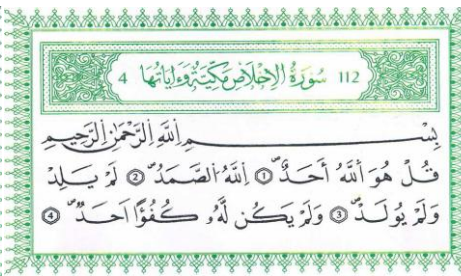 112 سُورَةُ الْإِخْلَاصِ مَكِّيَّةٌ وَءَايَاتُهَا 4
بِسْمِ اِ۬للَّهِ اِ۬لرَّحْمَٰنِ اِ۬لرَّحِيمِ
قُلْ هُوَ اَ۬للَّهُ أَحَدٌ ۝1 اِ۬للَّهُ اُ۬لصَّمَدُ ۝2 لَمْ يَلِدْ
وَلَمْ يُولَدْ ۝3 وَلَمْ يَكُن لَّهُۥ كُفُؤًا اَحَدٌ ۝4